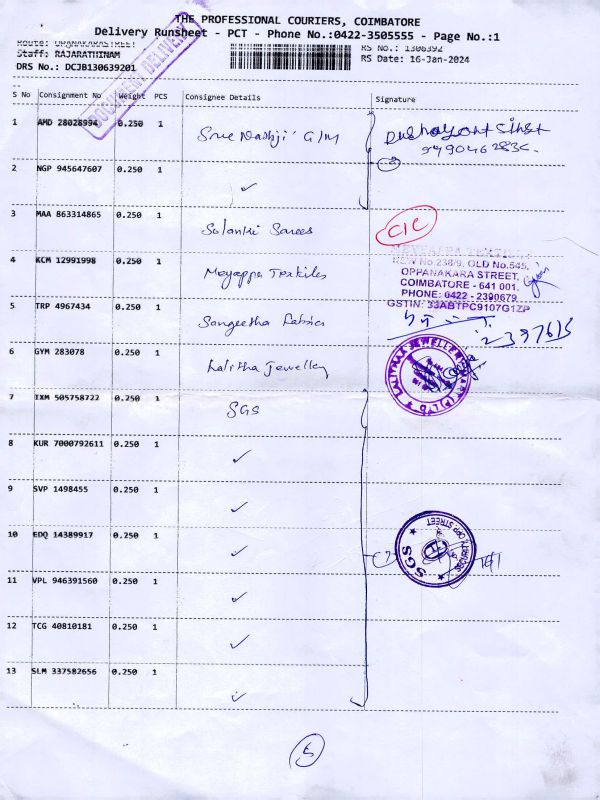 THE PROFESSIONAL COURIERS, COIMBATORE
Delivery Runsheet - PCT - Phone No.:0422-3505555 - Page No.:1
Staff: RAJARATHINAM
RS No.: 1306392
DRS No.: DCJB130639201
RS Date: 16-Jan-2024
DOCUMENT DELIVERY
S No Consignment No Weight PCS Consignee Details Signature
1 AMD 28028994 0.250 1
2 NGP 945647607 0.250 1 ✓
3 MAA 863314865 0.250 1 Solanki Sarees CIC
4 KCM 12991998 0.250 1 Meyappa Textiles
NEW No.238/9, OLD No.545,
OPPANAKARA STREET,
COIMBATORE - 641 001.
PHONE: 0422 - 2390679
GSTIN: 33ABTPC9107G1ZP
5 TRP 4967434 0.250 1 Sangeetha Fabrics
6 GYM 283078 0.250 1 Lalitha Jewellery
7 IXM 505758722 0.250 1 SGS
8 KUR 7000792611 0.250 1 ✓
9 SVP 1498455 0.250 1 ✓
10 EDQ 14389917 0.250 1 ✓
SGS
11 VPL 946391560 0.250 1 ✓
12 TCG 40810181 0.250 1 ✓
13 SLM 337582656 0.250 1 ✓
5